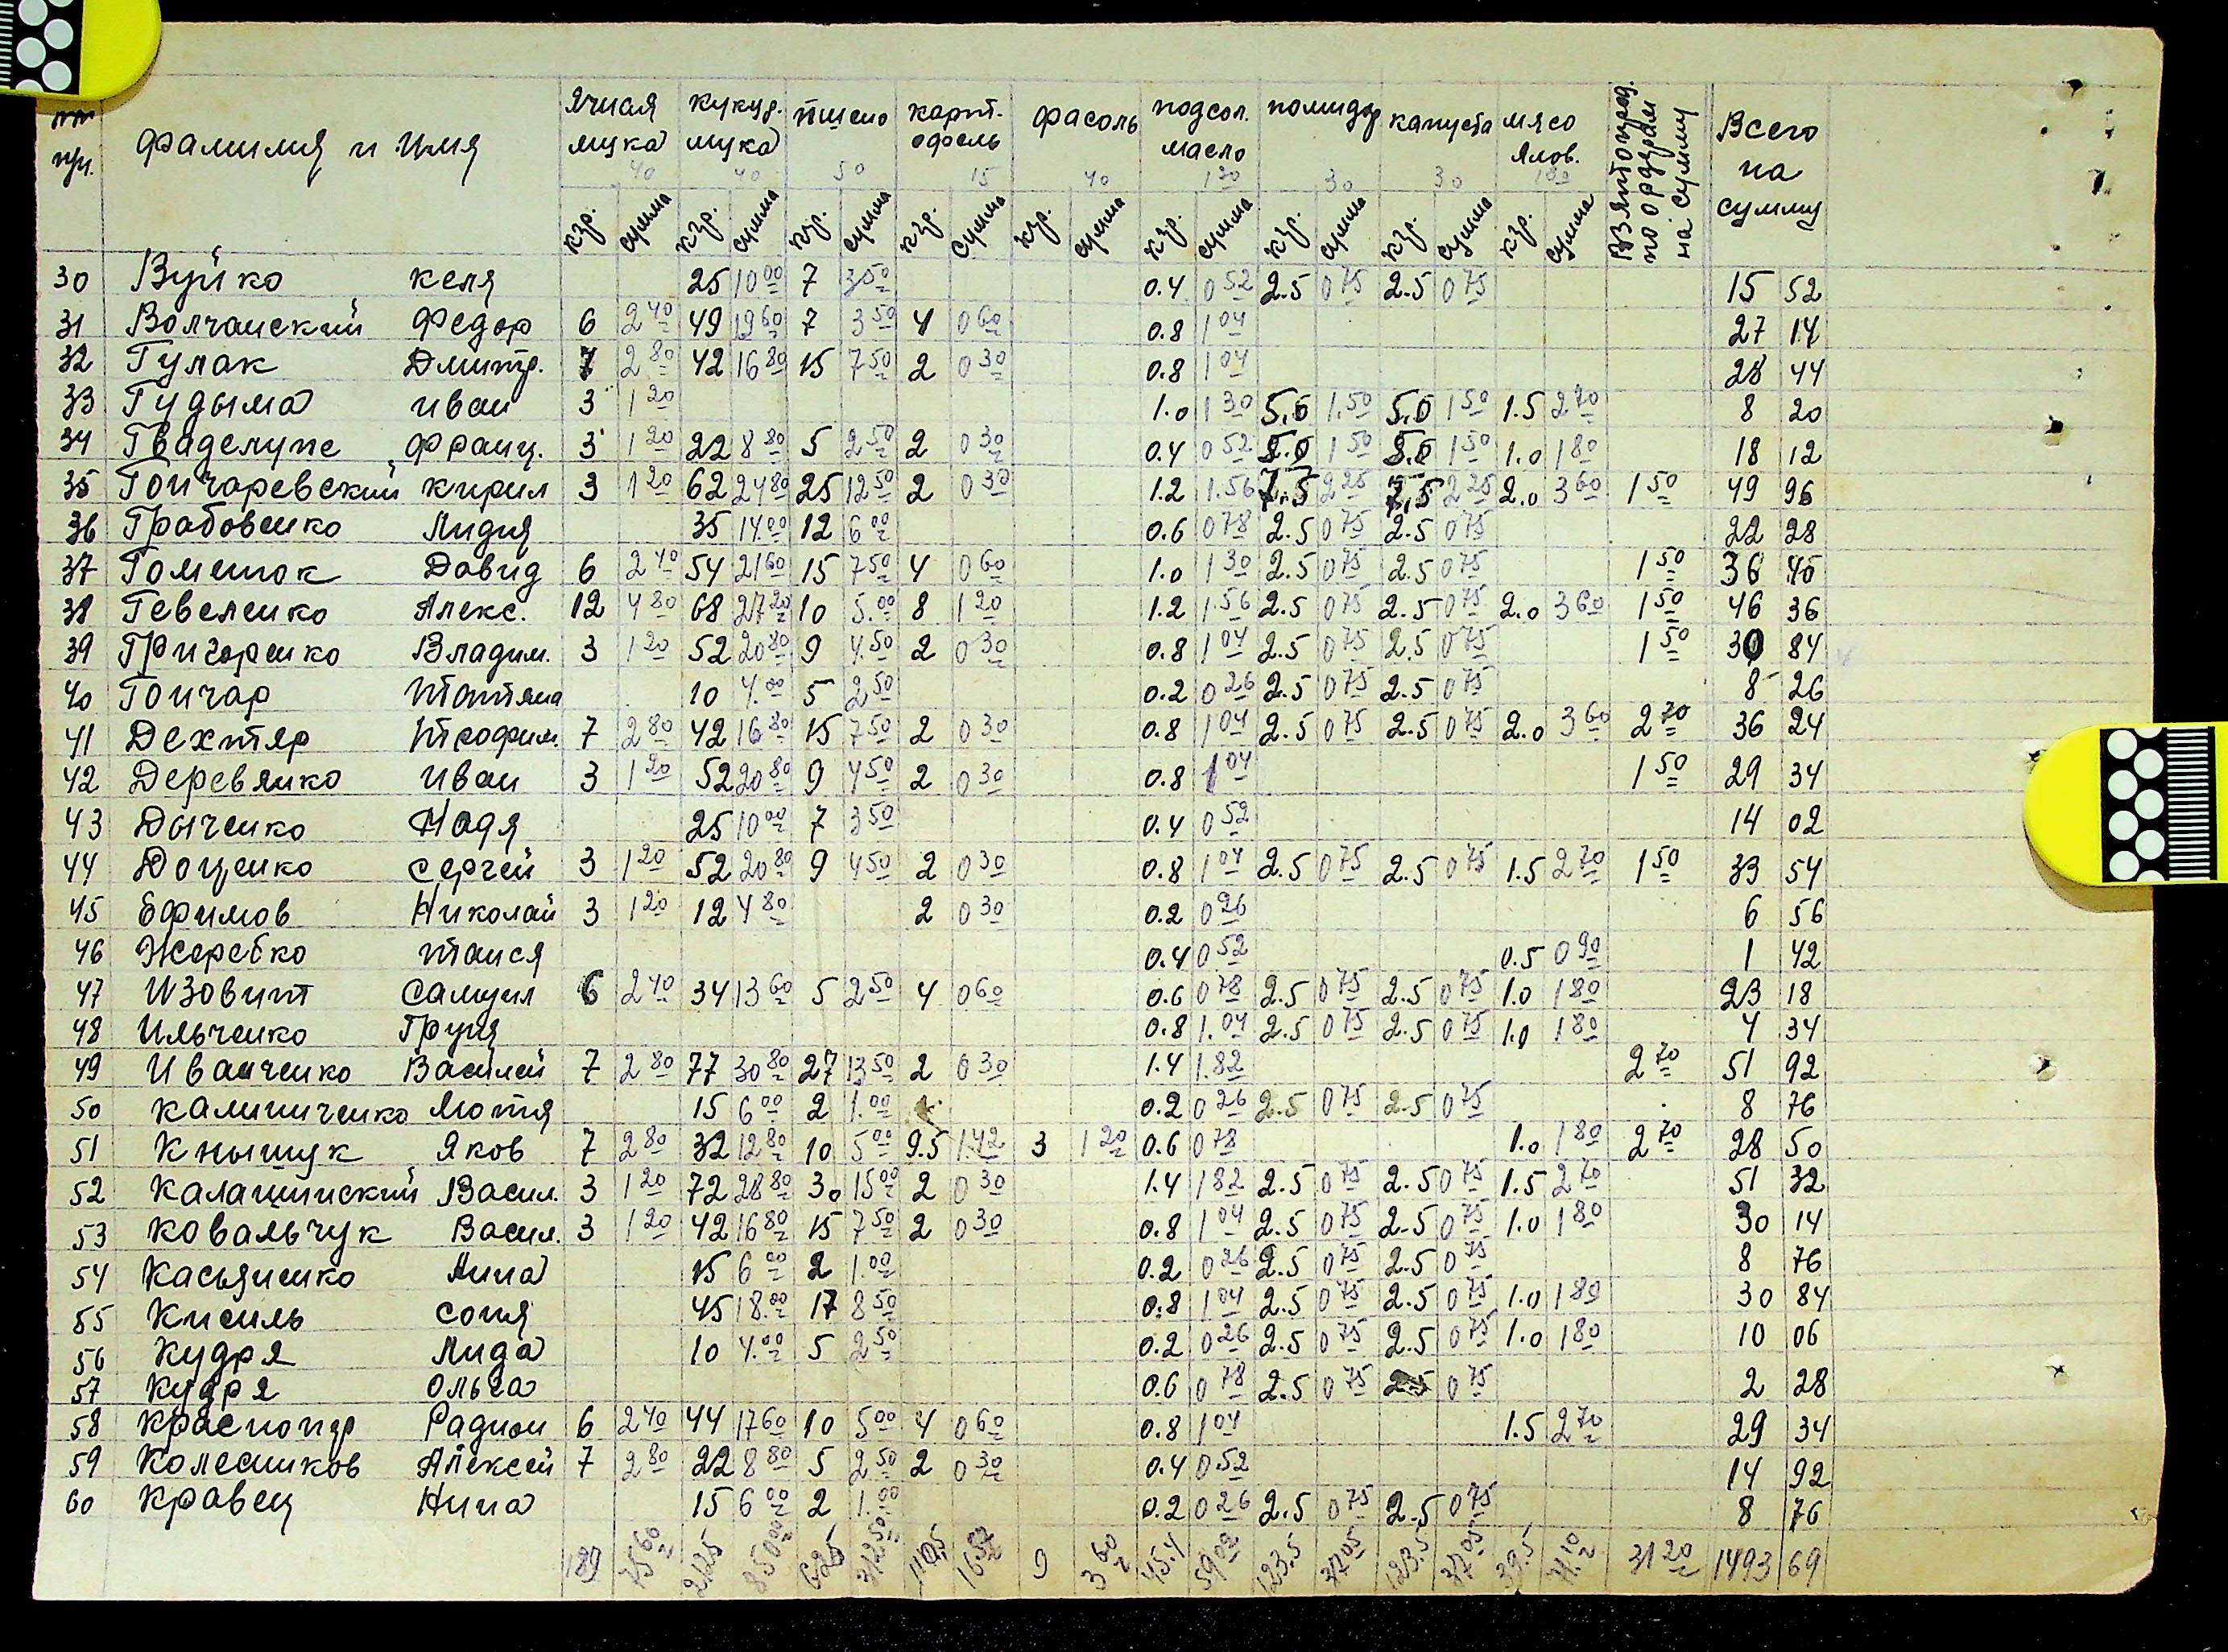 №№ пп. фамилия и имя ячная мука кукур. мука пшено карт-офель фасоль подсол. масло помидор капуста мясо ялов. взято прод. по ордерам на сумму Всего на сумму
40 40 50 15 40 1 30 30 30 1 80
кгр. сумма кгр. сумма кгр. сумма кгр. сумма кгр. сумма кгр. сумма кгр. сумма кгр. сумма кгр. сумма
30 Вуйко келя 25 10 00 7 3 50 0.4 0 52 2.5 0 75 2.5 0 75 15 52
31 Волчанский Федор 6 2 40 49 19 60 7 3 50 4 0 60 0.8 1 04 27 14
32 Гулак Дмитр. 7 2 80 42 16 80 15 7 50 2 0 30 0.8 1 04 28 44
33 Гудыма иван 3 1 20 1.0 1 30 5.0 1.50 5.0 1 50 1.5 2 70 8 20
34 Гваделупе Франц. 3 1 20 22 8 80 5 2 50 2 0 30 0.4 0 52 5.0 1 50 5.0 1 50 1.0 1 80 18 12
35 Гончаревский кирил 3 1 20 62 24 80 25 12 50 2 0 30 1.2 1.56 7.5 2 25 7.5 2 25 2.0 3 60 1 50 49 96
36 Грабовенко Лидия 35 14.00 12 6 00 0.6 0 78 2.5 0 75 2.5 0 75 22 28
37 Гоменюк Давид 6 2 40 54 21 60 15 7 50 4 0 60 1.0 1 30 2.5 0 75 2.5 0 75 1 50 36 40
38 Гевеленко Алекс. 12 4 80 68 27 20 10 5.00 8 1 20 1.2 1.56 2.5 0 75 2.5 0 75 2.0 3 60 1 50 46 36
39 Григоренко Владим. 3 1 20 52 20 80 9 4.50 2 0 30 0.8 1 04 2.5 0 75 2.5 0 75 1 50 30 84
40 Гончар Татяна 10 4.00 5 2 50 0.2 0 26 2.5 0 75 2.5 0 75 8 26
41 Дехтяр Трофим. 7 2 80 42 16 80 15 7 50 2 0 30 0.8 1 04 2.5 0 75 2.5 0 75 2.0 3 60 2 70 36 24
42 Деревянко иван 3 1 20 52 20 80 9 4 50 2 0 30 0.8 1 04 1 50 29 34
43 Дыченко Надя 25 10 00 7 3 50 0.4 0 52 14 02
44 Доценко сергей 3 1 20 52 20 80 9 4 50 2 0 30 0.8 1 04 2.5 0 75 2.5 0 75 1.5 2 70 1 50 33 54
45 Ефимов Николай 3 1 20 12 4 80 2 0 30 0.2 0 26 6 56
46 Жеребко таися 0.4 0 52 0.5 0 90 1 42
47 Изовит самуил 6 2 40 34 13 60 5 2 50 4 0 60 0.6 0 78 2.5 0 75 2.5 0 75 1.0 1 80 23 18
48 Ильченко Груня 0.8 1.04 2.5 0 75 2.5 0 75 1.0 1 80 4 34
49 Иванченко Василей 7 2 80 77 30 80 27 13 50 2 0 30 1.4 1.82 2 70 51 92
50 калиниченко Мотя 15 6 00 2 1.00 0.2 0 26 2.5 0 75 2.5 0 75 8 76
51 Кнышук Яков 7 2 80 32 12 80 10 5 00 9.5 1.42 3 1 20 0.6 0 78 1.0 1 80 2 70 28 50
52 Калашинский Васил. 3 1 20 72 28 80 30 15 00 2 0 30 1.4 1 82 2.5 0 75 2.5 0 75 1.5 2 70 51 32
53 ковальчук Васил. 3 1 20 42 16 80 15 7 50 2 0 30 0.8 1 04 2.5 0 75 2.5 0 75 1.0 1 80 30 14
54 Касьяненко Анна 15 6 00 2 1.00 0.2 0 26 2.5 0 75 2.5 0 75 8 76
55 Кисиль соня 45 18.00 17 8 50 0.8 1 04 2.5 0 75 2.5 0 75 1.0 1 80 30 84
56 Кудря Лида 10 4.00 5 2 50 0.2 0 26 2.5 0 75 2.5 0 75 1.0 1 80 10 06
57 Кудря Ольга 0.6 0 78 2.5 0 75 2.5 0 75 2 28
58 краснопір Радион 6 2 40 44 17 60 10 5 00 4 0 60 0.8 1 04 1.5 2 70 29 34
59 Колесников Алексей 7 2 80 22 8 80 5 2 50 2 0 30 0.4 0.52 14 92
60 кравец Нина 15 6 00 2 1.00 0.2 0 26 2.5 0 75 2.5 0 75 8 76
189 75 60 2125 850 00 625 312 50 110.5 16 57 9 3 60 45.4 59 02 123.5 37 05 123.5 37 05 39.5 71.10 31 20 1493 69